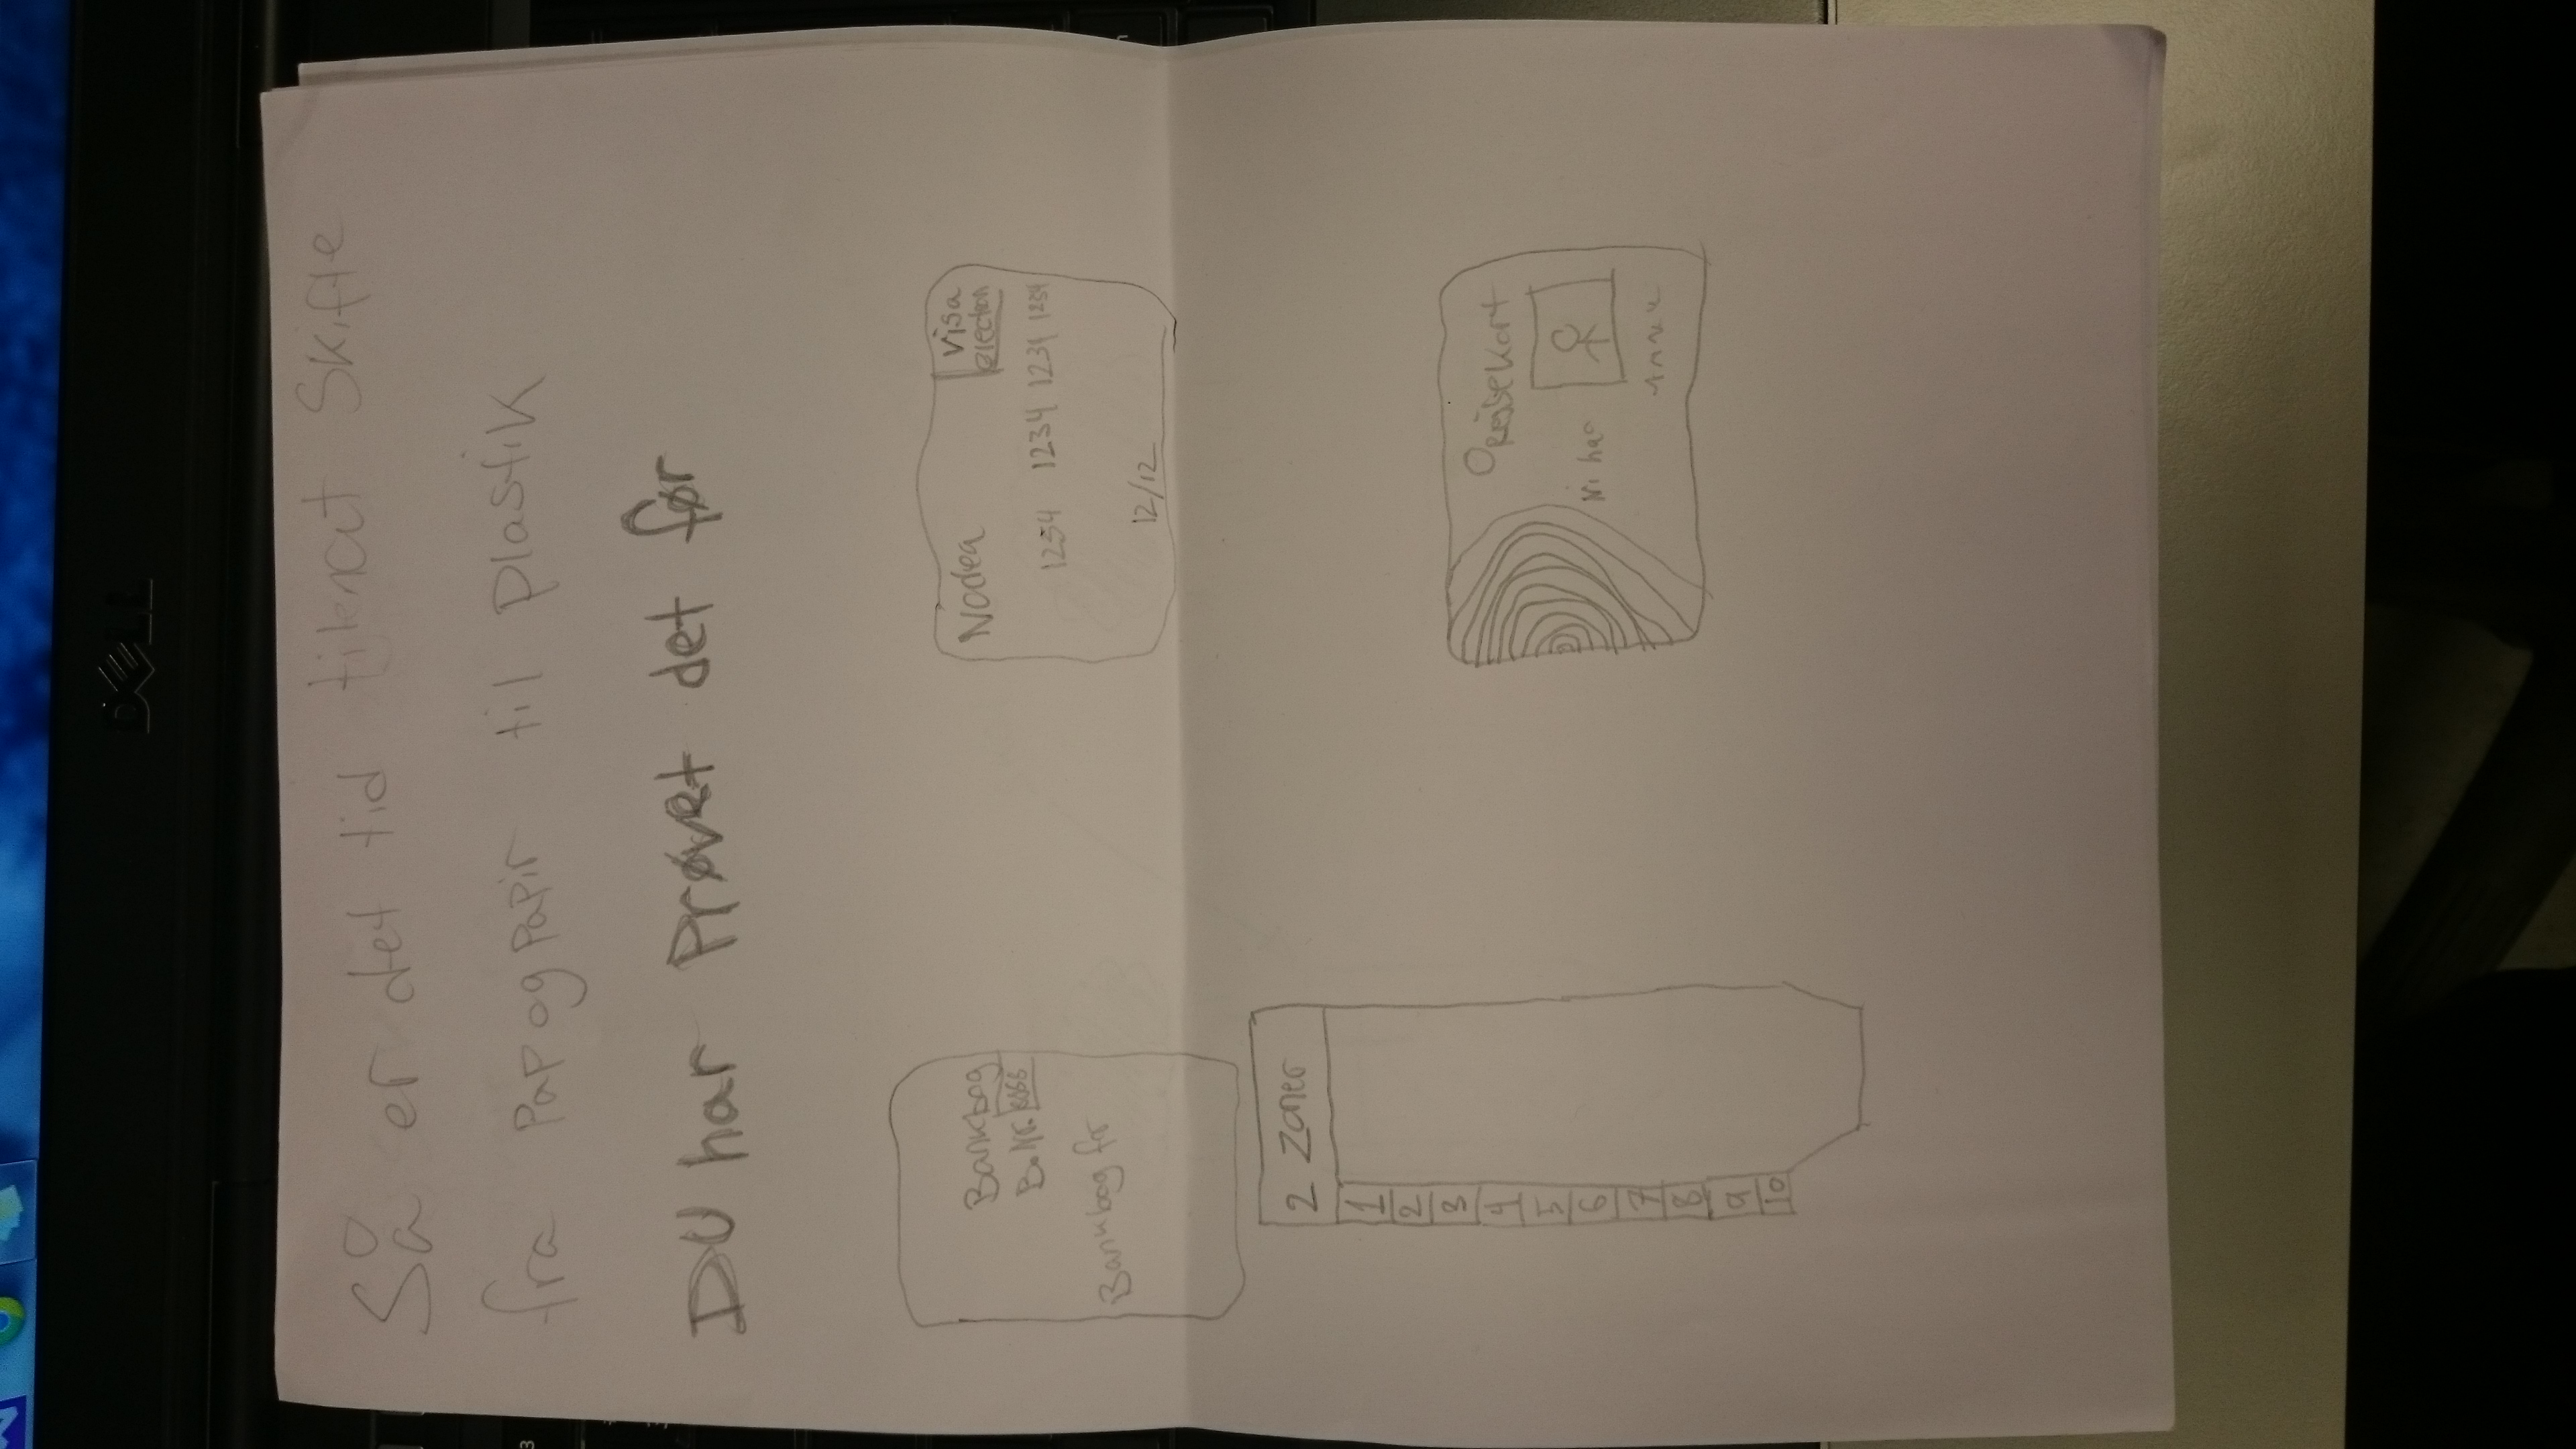 DELL
Så er det tid til at Skifte
fra Pap og Papir til Plastik
DU har Prøvet det før
Bankbog
B.Nr.
Bankbog for
Nodea
Visa
electron
1254 1234 1234 1234
12/12
2 Zoner
1
2
3
4
5
6
7
8
9
10
Rejsekort